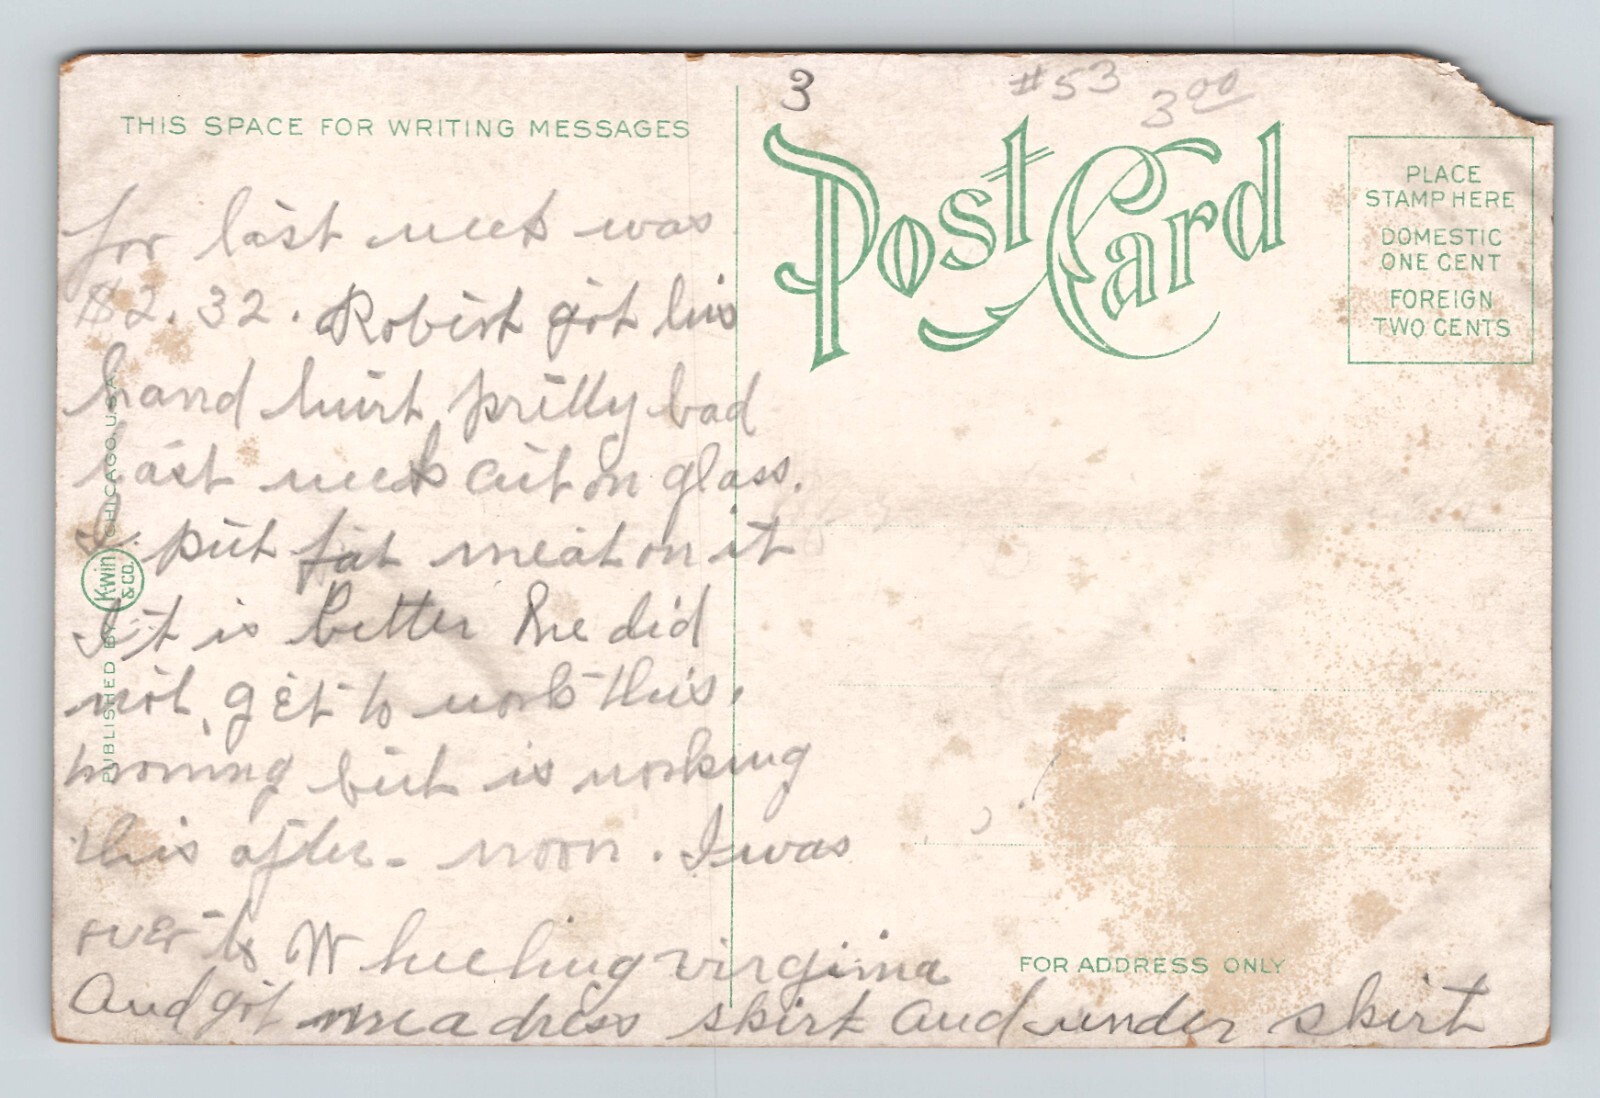 3
#53
3 00
THIS SPACE FOR WRITING MESSAGES
Post Card
PLACE
STAMP HERE
DOMESTIC
ONE CENT
FOREIGN
TWO CENTS
for last week was
$2.32. Robert got his
hand hurt pretty bad
last week cut on glass.
I. put fat meat on it
It is better he did
not get to work this.
morning but is working
this after- noon. I was
over to Wheeling virginia
And got me a dress skirt and under skirt
FOR ADDRESS ONLY
PUBLISHED BY KWIN & CO. CHICAGO, U.S.A.